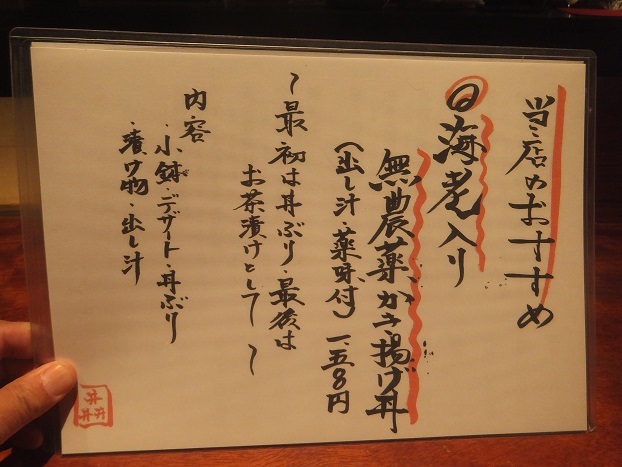 当店のおすすめ
海老入り
無農薬かき揚げ丼
(出し汁・薬味付)一、五八〇円
〜最初は丼ぶり・最後は
お茶漬けとして〜
内容
・小鉢・デザート・丼ぶり
・漬け物・出し汁